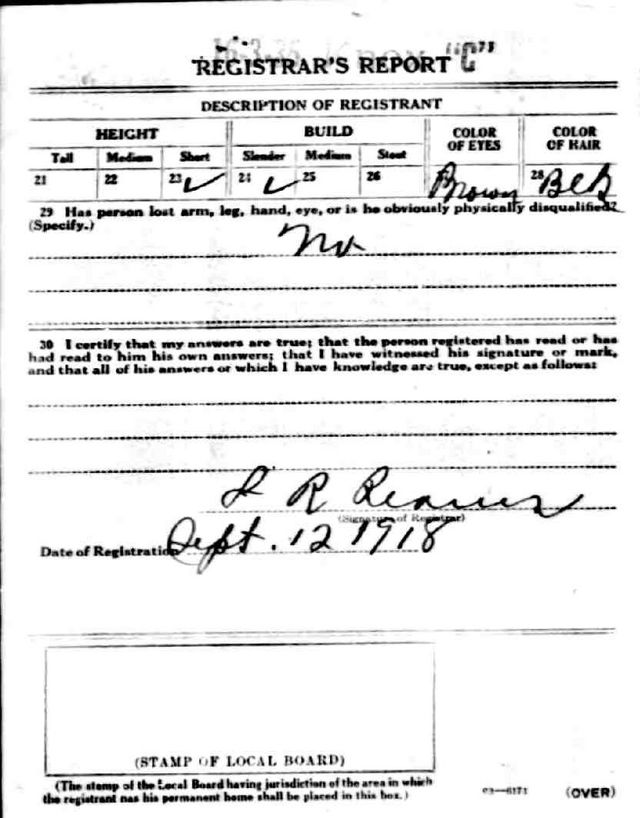 REGISTRAR'S REPORT "C"
DESCRIPTION OF REGISTRANT
HEIGHT BUILD COLOR OF EYES COLOR OF HAIR
Tall Medium Short Slender Medium Stout
21 22 23 ✓ 24 ✓ 25 26 Brown 28 Blk
29 Has person lost arm, leg, hand, eye, or is he obviously physically disqualified?
(Specify.)
No
30 I certify that my answers are true; that the person registered has read or has
had read to him his own answers; that I have witnessed his signature or mark,
and that all of his answers of which I have knowledge are true, except as follows:
R
(Signature of Registrar)
Date of Registration Sept. 12 1918
(STAMP OF LOCAL BOARD)
(The stamp of the Local Board having jurisdiction of the area in which
the registrant has his permanent home shall be placed in this box.)
03—6171 (OVER)